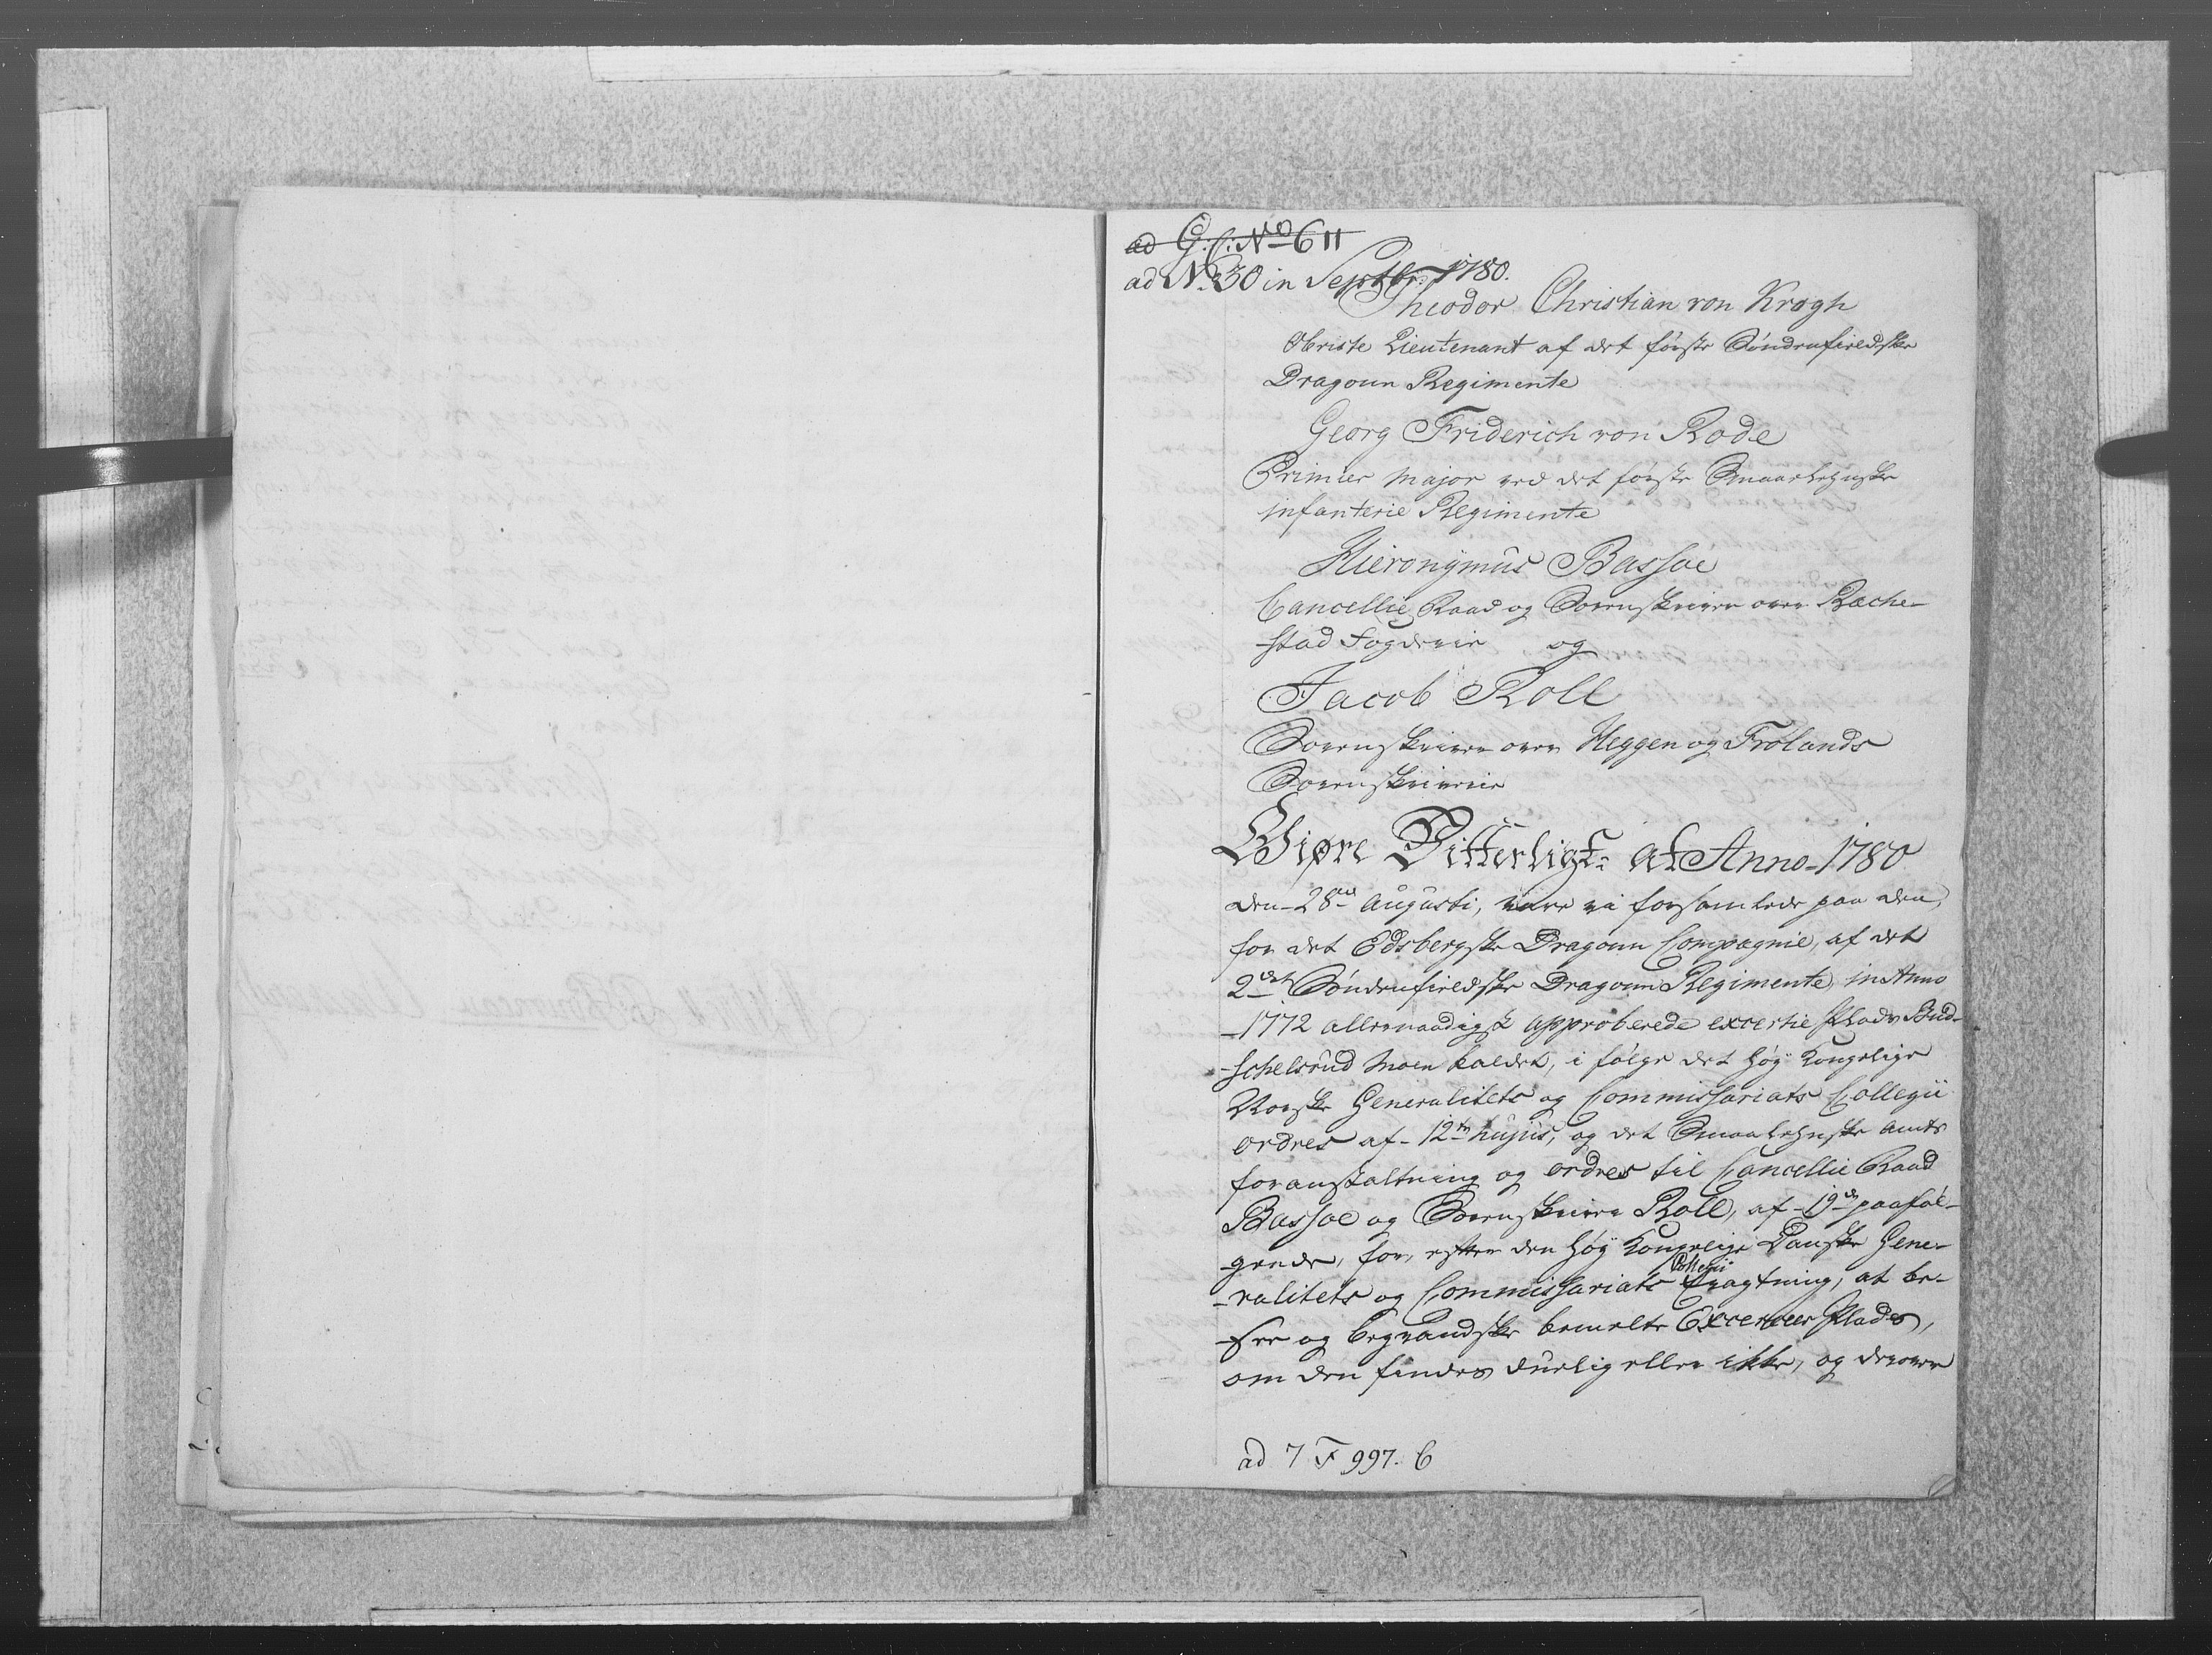 ad G: C: No 611
ad No 30 in Septbr: 1780.
Theodor Christian von Krogh
Obriste Lieutenant af det første Söndenfieldske
Dragoun Regimente
Georg Friderich von Rode
Primier Major ved det første Smaalehnske
infanterie Regimente
Hieronÿmus Bassøe
Cancellie Raad og Sorenskriver over Rache-
-stad Fogderie og
Jacob Roll
Sorenskriver over Heggen og Frølands
Sorenskriverie
Giøre Vitterligt: at Anno 1780
den 28de Augusti, vare vi forsamlede paa den,
for det Edsbergske Dragoun Compagnie, af det
2det Söndenfieldske Dragoun Regimente, in Anno
1772 allernaadigst approberede excertie Plads Bud-
-schelsrud Moen kaldet, i følge det høÿ Kongelige
Norske Generalitets og Commissariats Collegii
ordres af 12te hujus, og det Smaalehnske Amts
foranstaltning og ordres til Cancellie Raad
Bassøe og Sorenskriver Roll, af 19de paaføl-
-gende, for, efter den høÿ Kongelige Danske Gene-
-ralitets og Commissariats Collegii Eragtning, at be-
-see og begrandske bemelte Excerceer Plads,
om den findes duelig eller ikke, og derover
ad 7 F 997. C